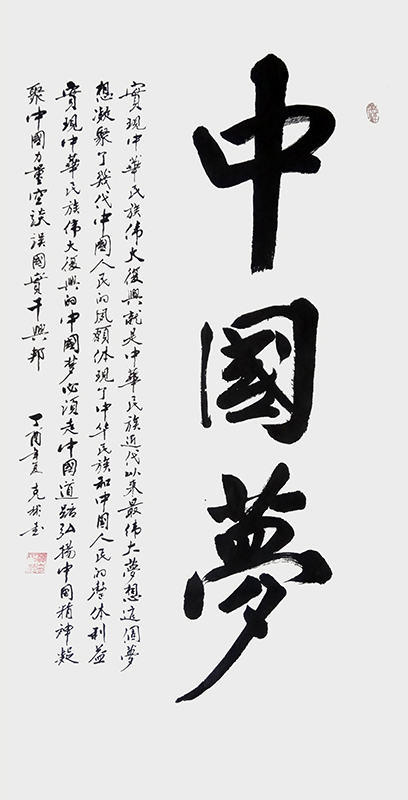 中國夢
實現中華民族伟大復興就是中華民族近代以来最伟大夢想這個夢
想凝聚了幾代中國人民的夙願体現了中华民族和中國人民的整体利益
實現中華民族伟大復興的中國梦必須走中國道路弘揚中國精神凝
聚中國力量空談誤國實干興邦
丁酉年夏克